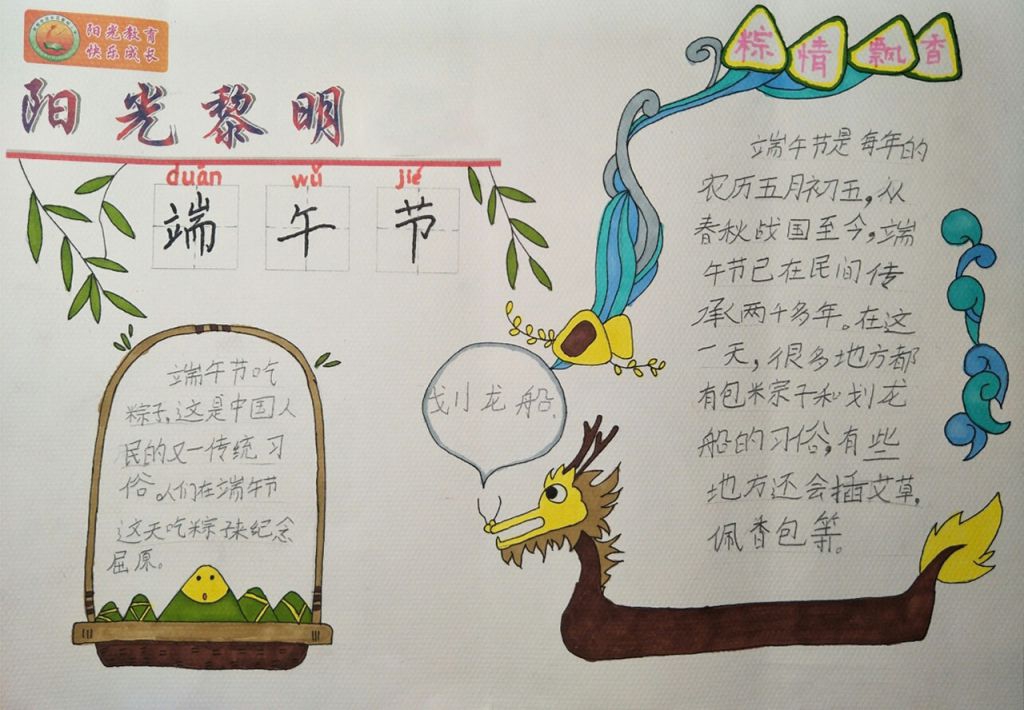 阳光教育
快乐成长
阳光黎明
duān wǔ jié
端午节
粽情飘香
端午节吃
粽子,这是中国人
民的又一传统习
俗。人们在端午节
这天吃粽子来纪念
屈原。
划龙船.
端午节是每年的
农历五月初五,从
春秋战国至今,端
午节已在民间传
承两千多年。在这
一天,很多地方都
有包米宗子和划龙
船的习俗,有些
地方还会插艾草,
佩香包等。